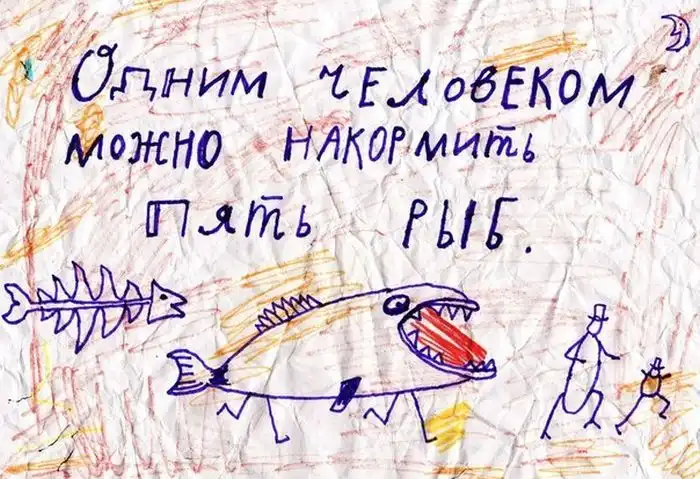 Одним человеком
можно накормить
пять рыб.